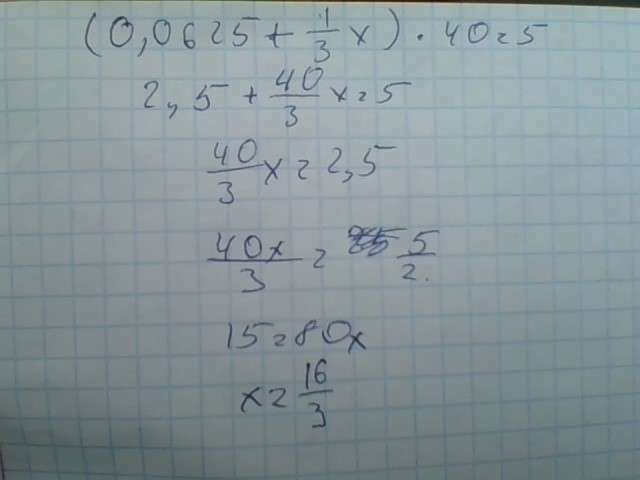 (0,0625 + 1/3 x) · 40 = 5
2,5 + 40/3 x = 5
40/3 x = 2,5
40x/3 = 5/2.
15 = 80x
x = 16/3